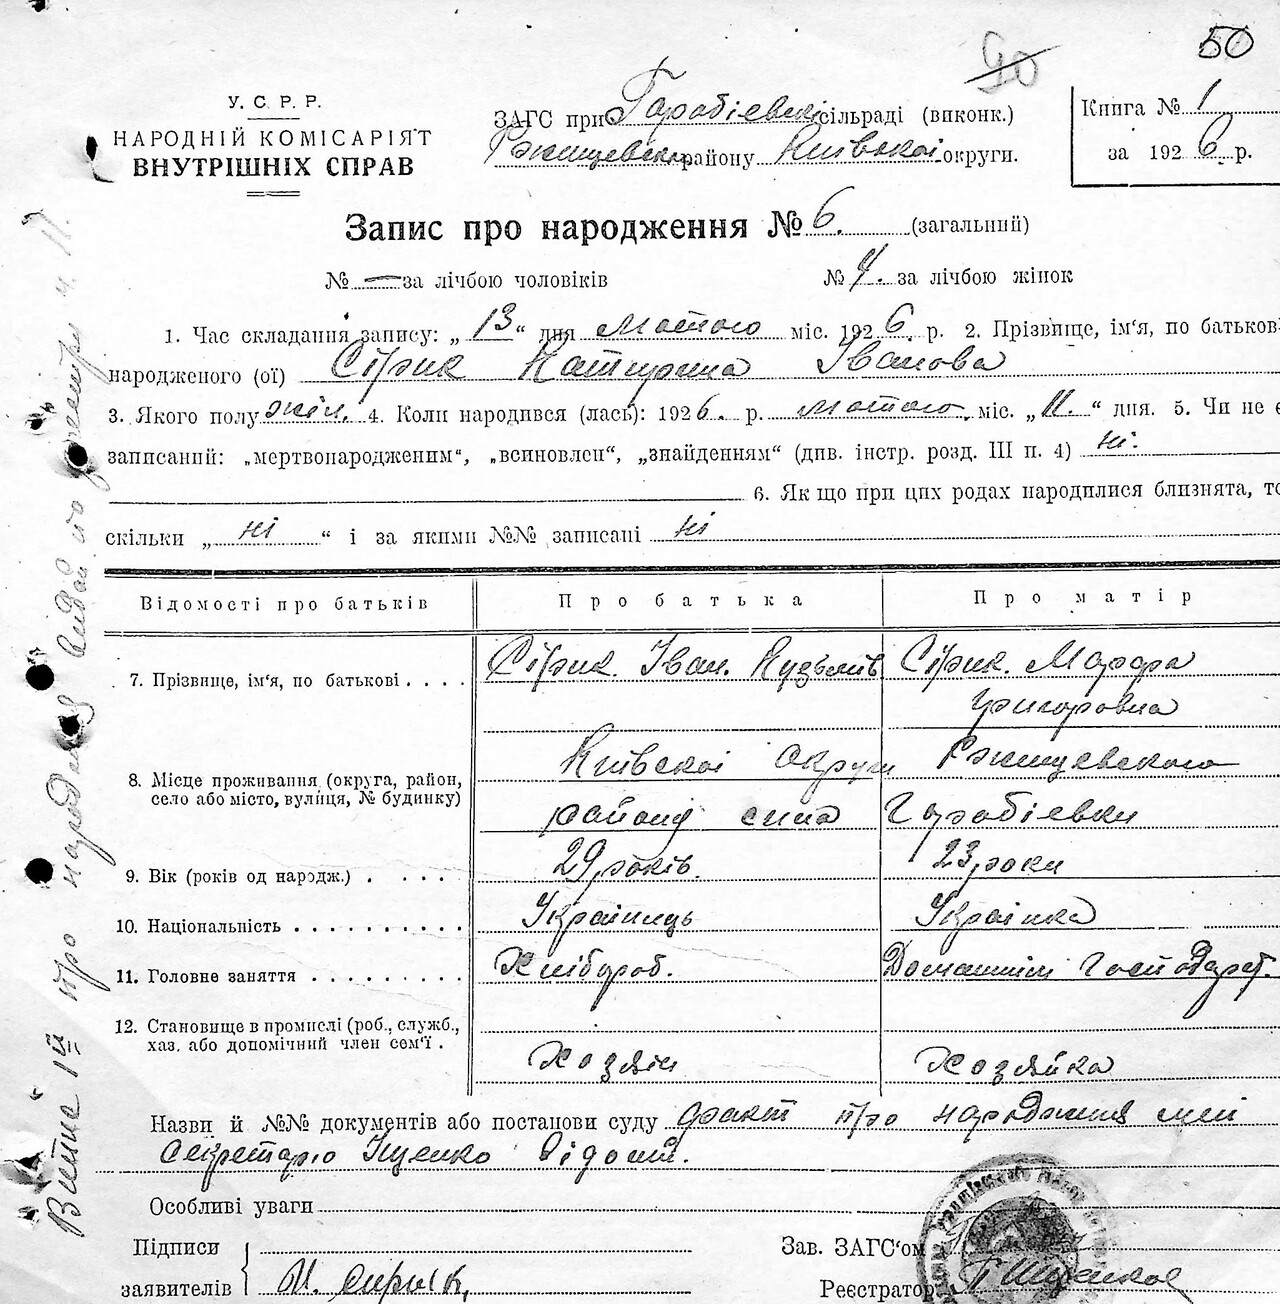 50
90
У. С. Р. Р.
НАРОДНІЙ КОМІСАРІЯТ
ВНУТРІШНІХ СПРАВ
ЗАГС при сільраді (виконк.)
району Київскоі округи.
Книга № 1
за 1926 р.
Запис про народження № 6. (загальний)
№ — за лічбою чоловіків № 4. за лічбою жінок
1. Час складання запису: „ 13 “ дня Лютого міс. 1926 р. 2. Прізвище, ім'я, по батьков-
народженого (ої) Сірик Катирина Іванова
3. Якого полу жін. 4. Коли народився (лась): 1926. р. лютого міс. „ 11. “ дня. 5. Чи не є
записаний: „мертвонародженим“, „всиновлен“, „знайденням“ (див. інстр. розд. III п. 4) ні.
6. Як що при цих родах народилися близнята, то
скільки „ ні “ і за якими №№ записані ні
Відомості про батьків Про батька Про матір
7. Прізвище, ім'я, по батькові . . . . Сірик Іван Кузьмів Сірик Марфа
Григоровна
8. Місце проживання (округа, район,
село або місто, вулиця, № будинку)
Київскоі округи Ржищевского
району села
9. Вік (років од народж.) . . . . 29 років. 23 роки
10. Національність . . . . . . . . . . Українець Українка
11. Головне заняття . . . . . . . . Хлібороб. Домашнім Господарст.
12. Становище в промислі (роб., служб.,
хаз. або допомічний член сем'ї .
Хозяін Хозяйка
Назви й №№ документів або постанови суду факт про народження мні
Секретарю Іщенко відомі.
Особливі уваги
Підписи
заявителів И. Сирик
Зав. ЗАГС'ом
Реєстратор
Витяг про народження